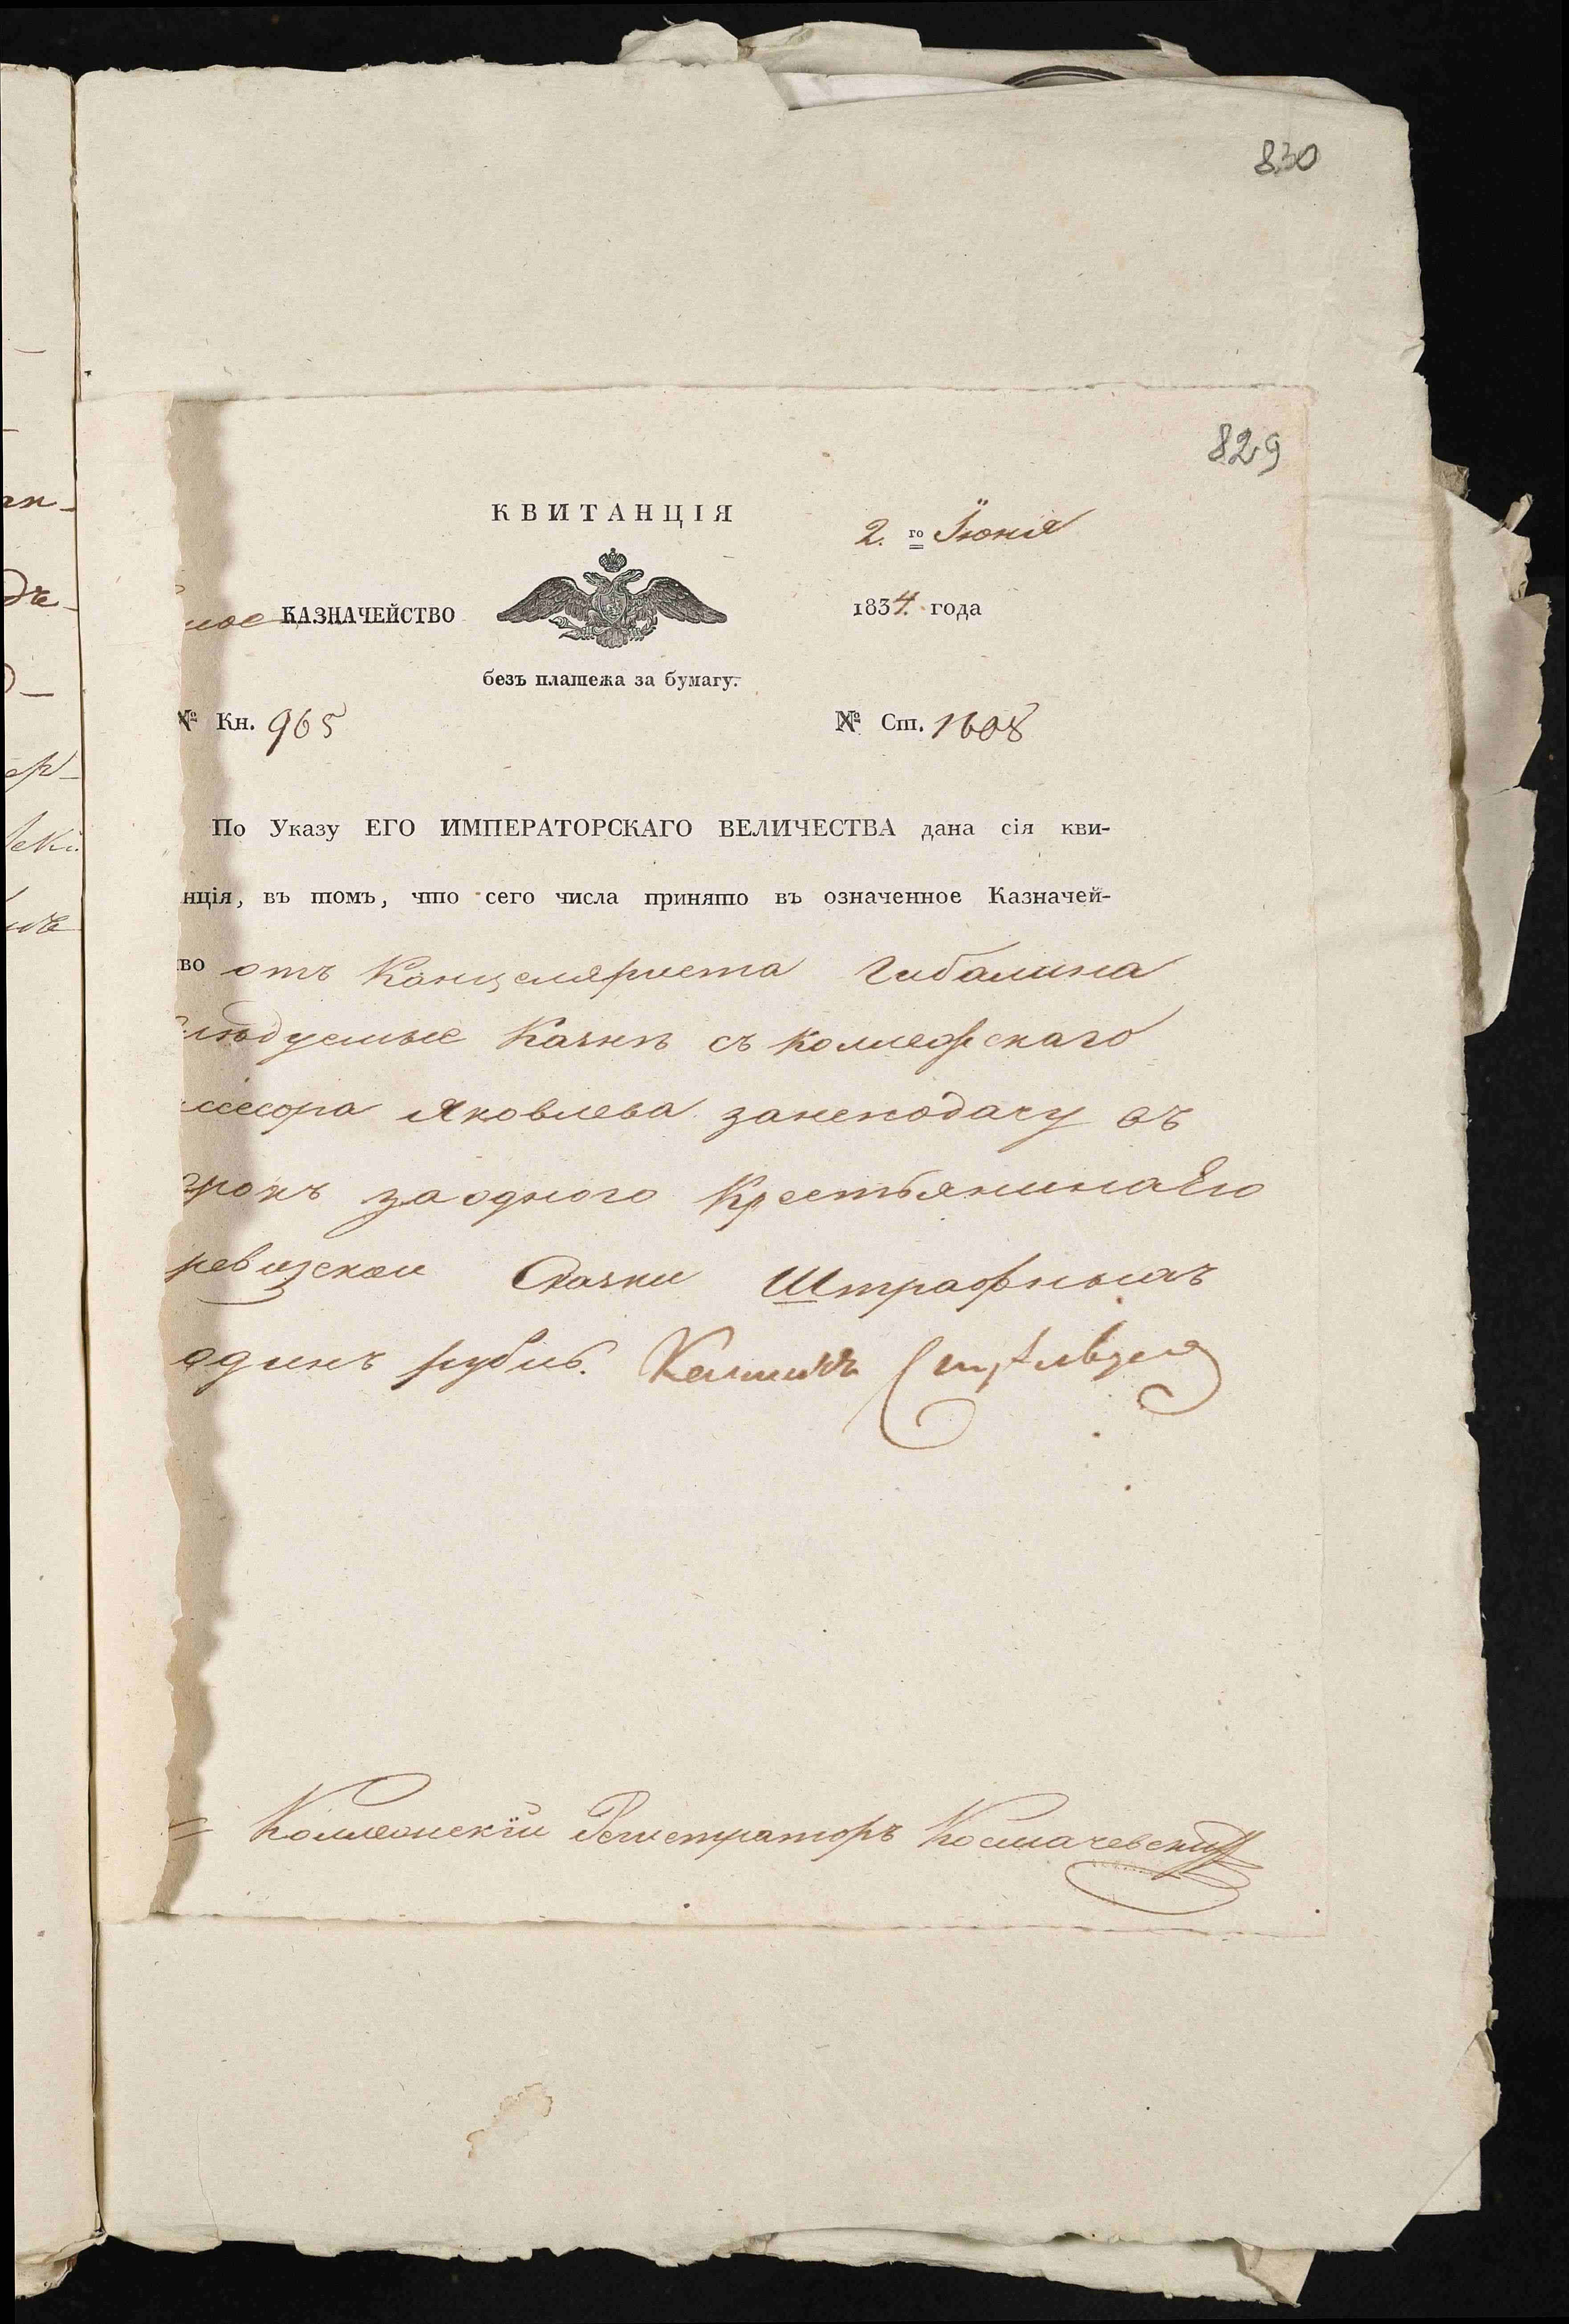 830
829
КВИТАНЦІЯ
2. го Іюня
ное КАЗНАЧЕЙСТВО
1834. года
безъ платежа за бумагу.
№ Кн. 965
№ Ст. 1608
По Указу ЕГО ИМПЕРАТОРСКАГО ВЕЛИЧЕСТВА дана сія кви-
нція, въ томъ, что сего числа принято въ означенное Казначей-
во отъ Канцеляриста Гибалина
слѣдуемые Казнѣ съ Коллежскаго
ссесора Яковлева занеподачу въ
срокъ заодного Крестьянина Его
ревизской Сказки Штрафныхъ
одинъ рубль.
Коллежскій Регистраторъ Космачевскій